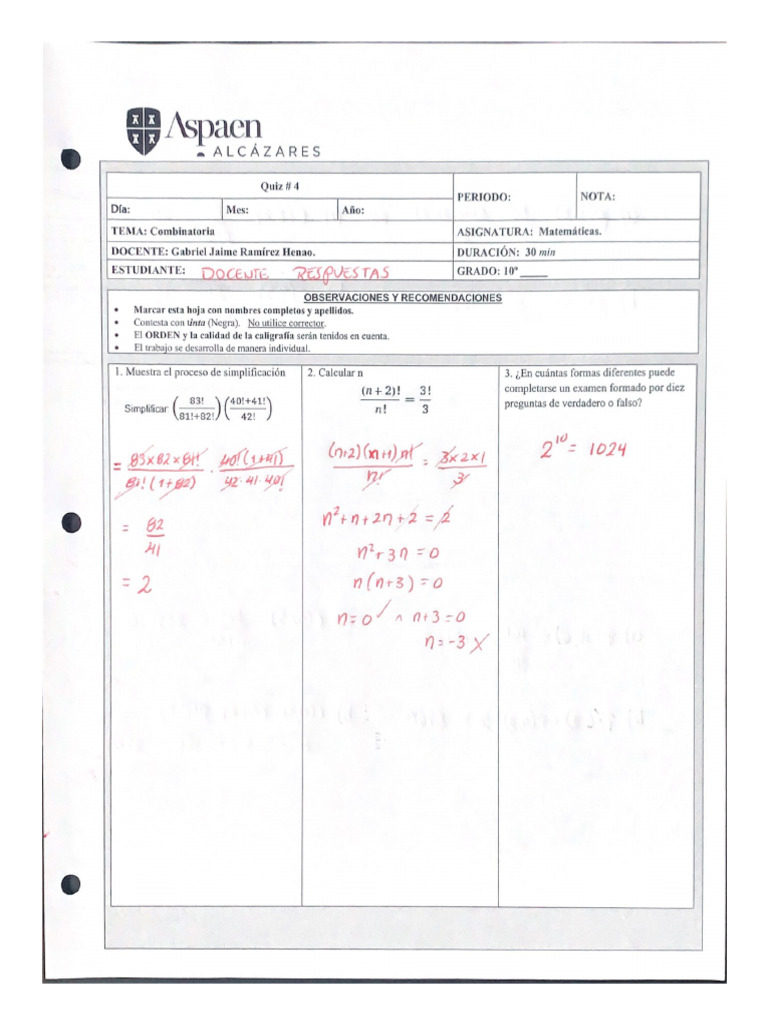 Aspaen
ALCÁZARES
Quiz # 4
PERIODO: NOTA:
Día: Mes: Año:
TEMA: Combinatoria ASIGNATURA: Matemáticas.
DOCENTE: Gabriel Jaime Ramírez Henao. DURACIÓN: 30 min
ESTUDIANTE: DOCENTE RESPUESTAS GRADO: 10º ____
OBSERVACIONES Y RECOMENDACIONES
• Marcar esta hoja con nombres completos y apellidos.
• Contesta con tinta (Negra). No utilice corrector.
• El ORDEN y la calidad de la caligrafía serán tenidos en cuenta.
• El trabajo se desarrolla de manera individual.
1. Muestra el proceso de simplificación
Simplificar (83!/(81!+82!)) ((40!+41!)/42!)
= (83x82x81!)/(81!(1+82)) · (40!(1+41))/(42·41·40!)
= 82/41
= 2
2. Calcular n
(n + 2)!/n! = 3!/3
(n+2)(n+1)n!/n! = 3x2x1/3
n²+n+2n+2 = 2
n²+3n = 0
n(n+3) = 0
n=0 ✓ ∧ n+3=0
n=-3 X
3. ¿En cuántas formas diferentes puede
completarse un examen formado por diez
preguntas de verdadero o falso?
2¹⁰ = 1024